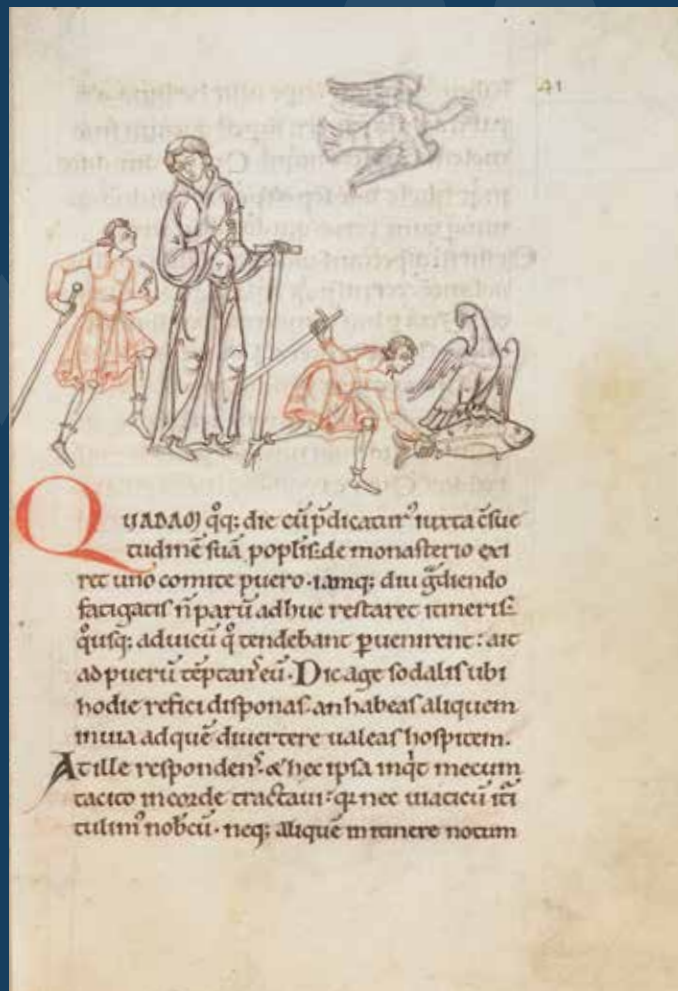 41
QUADAM q̊q; die cū p̄dicatur᾽ iuxta c̄sue
tudinē suā poplis: de monasterio exi
ret uno comite puero · iamq; diu g̊diendo
fatigatis n̄ parū adhuc restaret itineris:
q̊usq; ad uicū q̊ tendebant puenirent: ait
ad puerū tēptans eū · Dic age sodalis ubi
hodie refici disponas: an habeas aliquem
in uia ad quē diuertere ualeas hospitem.
At ille respondens: & hec ipsa inq̇t mecum
tacito in corde tractaui: quia nec uiaticū iti
tulim᾽ nob̄cū · neq; aliquē in itinere notum